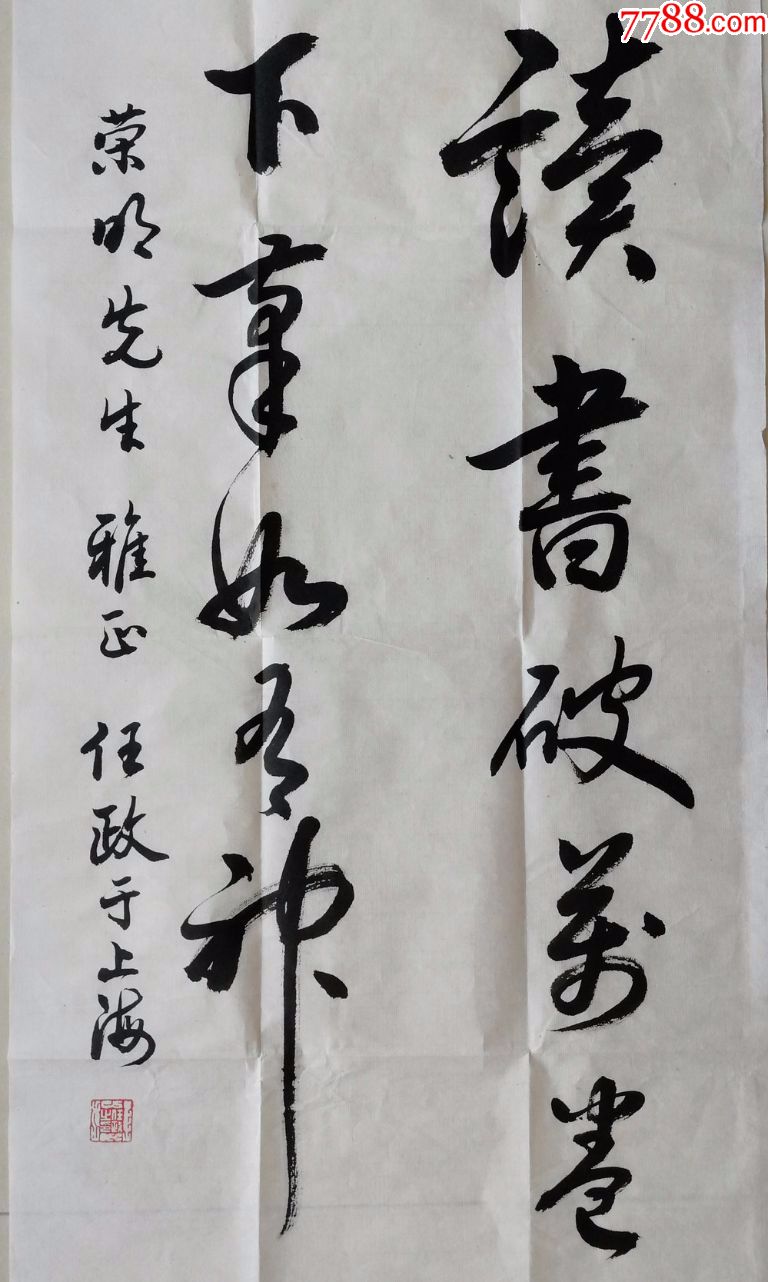 7788.com
讀書破萬卷
下筆如有神
荣明先生 雅正 任政于上海